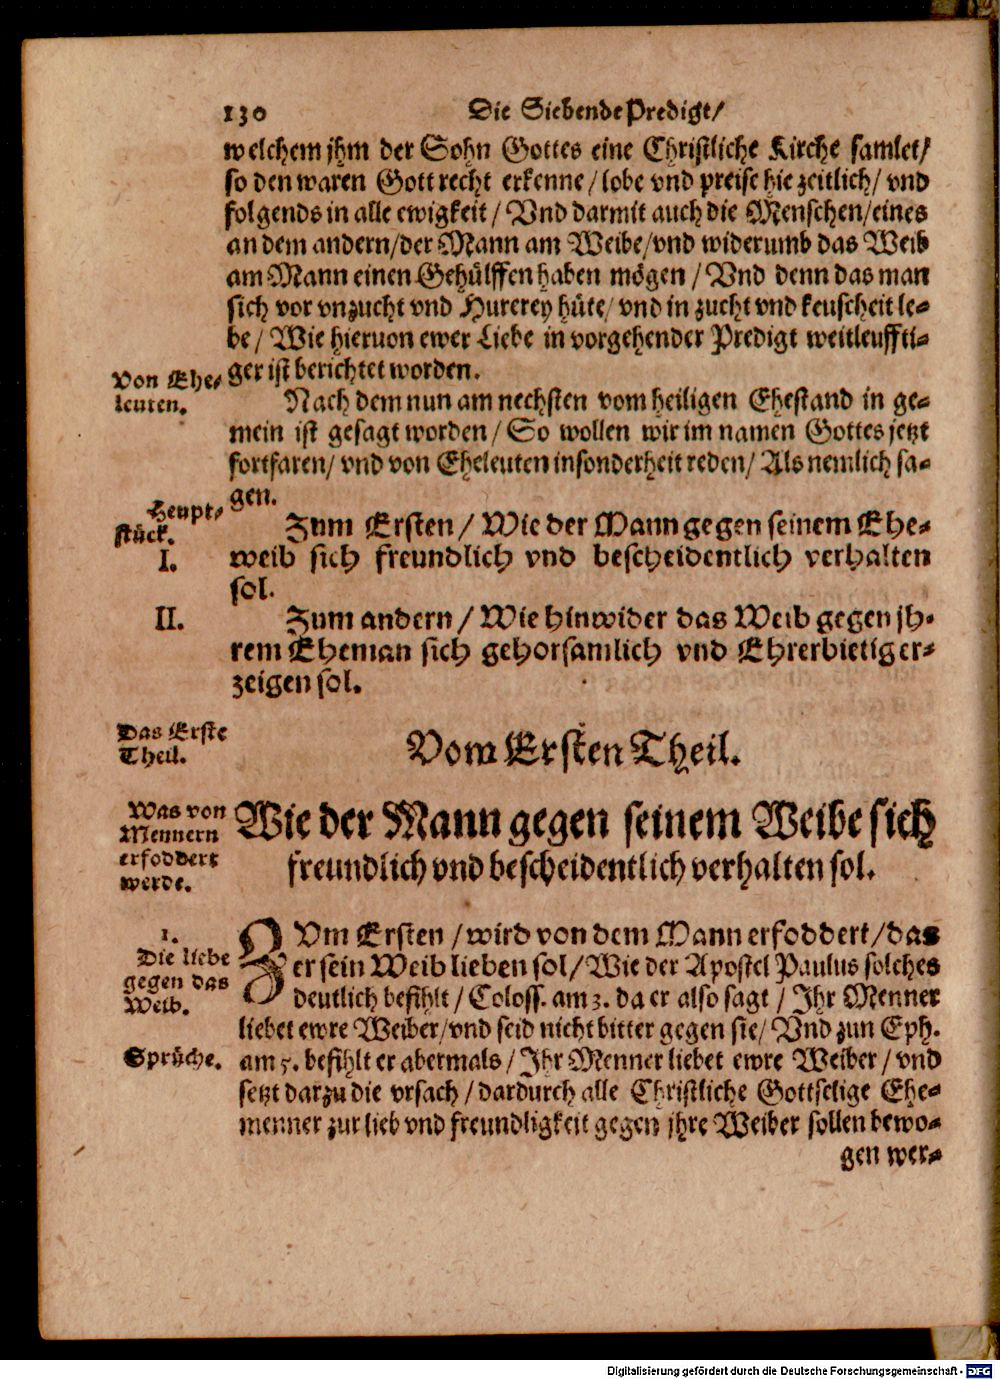 130 Die Siebende Predigt/
welchem jhm der Sohn Gottes eine Christliche Kirche samlet/
so den waren Gott recht erkenne/ lobe vnd preise hie zeitlich/ vnd
folgends in alle ewigkeit/ Vnd darmit auch die Menschen/ eines
an dem andern/ der Mann am Weibe/ vnd widerumb das Weib
am Mann einen Gehülffen haben mögen/ Vnd denn das man
sich vor vnzucht vnd Hurerey hüte/ vnd in zucht vnd keuscheit le-
be/ Wie hieruon ewer Liebe in vorgehender Predigt weitleuffti-
ger ist berichtet worden.
Von Ehe-
leuten.
Nach dem nun am nechsten vom heiligen Ehestand in ge-
mein ist gesagt worden/ So wollen wir im namen Gottes jetzt
fortfaren/ vnd von Eheleuten insonderheit reden/ Als nemlich sa-
gen.
Heupt-
stück.
I.
Zum Ersten/ Wie der Mann gegen seinem Ehe-
weib sich freundlich vnd bescheidentlich verhalten
sol.
II.
Zum andern/ Wie hinwider das Weib gegen jh-
rem Eheman sich gehorsamlich vnd Ehrerbietig er-
zeigen sol.
Das Erste
Theil.
Vom Ersten Theil.
Was von
Mennern
erfoddert
werde.
Wie der Mann gegen seinem Weibe sich
freundlich vnd bescheidentlich verhalten sol.
1.
Die liebe
gegen das
Weib.
ZVm Ersten/ wird von dem Mann erfoddert/ das
er sein Weib lieben sol/ Wie der Apostel Paulus solches
deutlich befihlt/ Coloss. am 3. da er also sagt/ Jhr Menner
liebet ewre Weiber/ vnd seid nicht bitter gegen sie/ Vnd zun Eph.
Sprüche.
am 5. befihlt er abermals/ Jhr Menner liebet ewre Weiber/ vnd
setzt darzu die vrsach/ dardurch alle Christliche Gottselige Ehe-
menner zur lieb vnd freundligkeit gegen jhre Weiber sollen bewo-
gen wer-
Digitalisierung gefördert durch die Deutsche Forschungsgemeinschaft - DFG